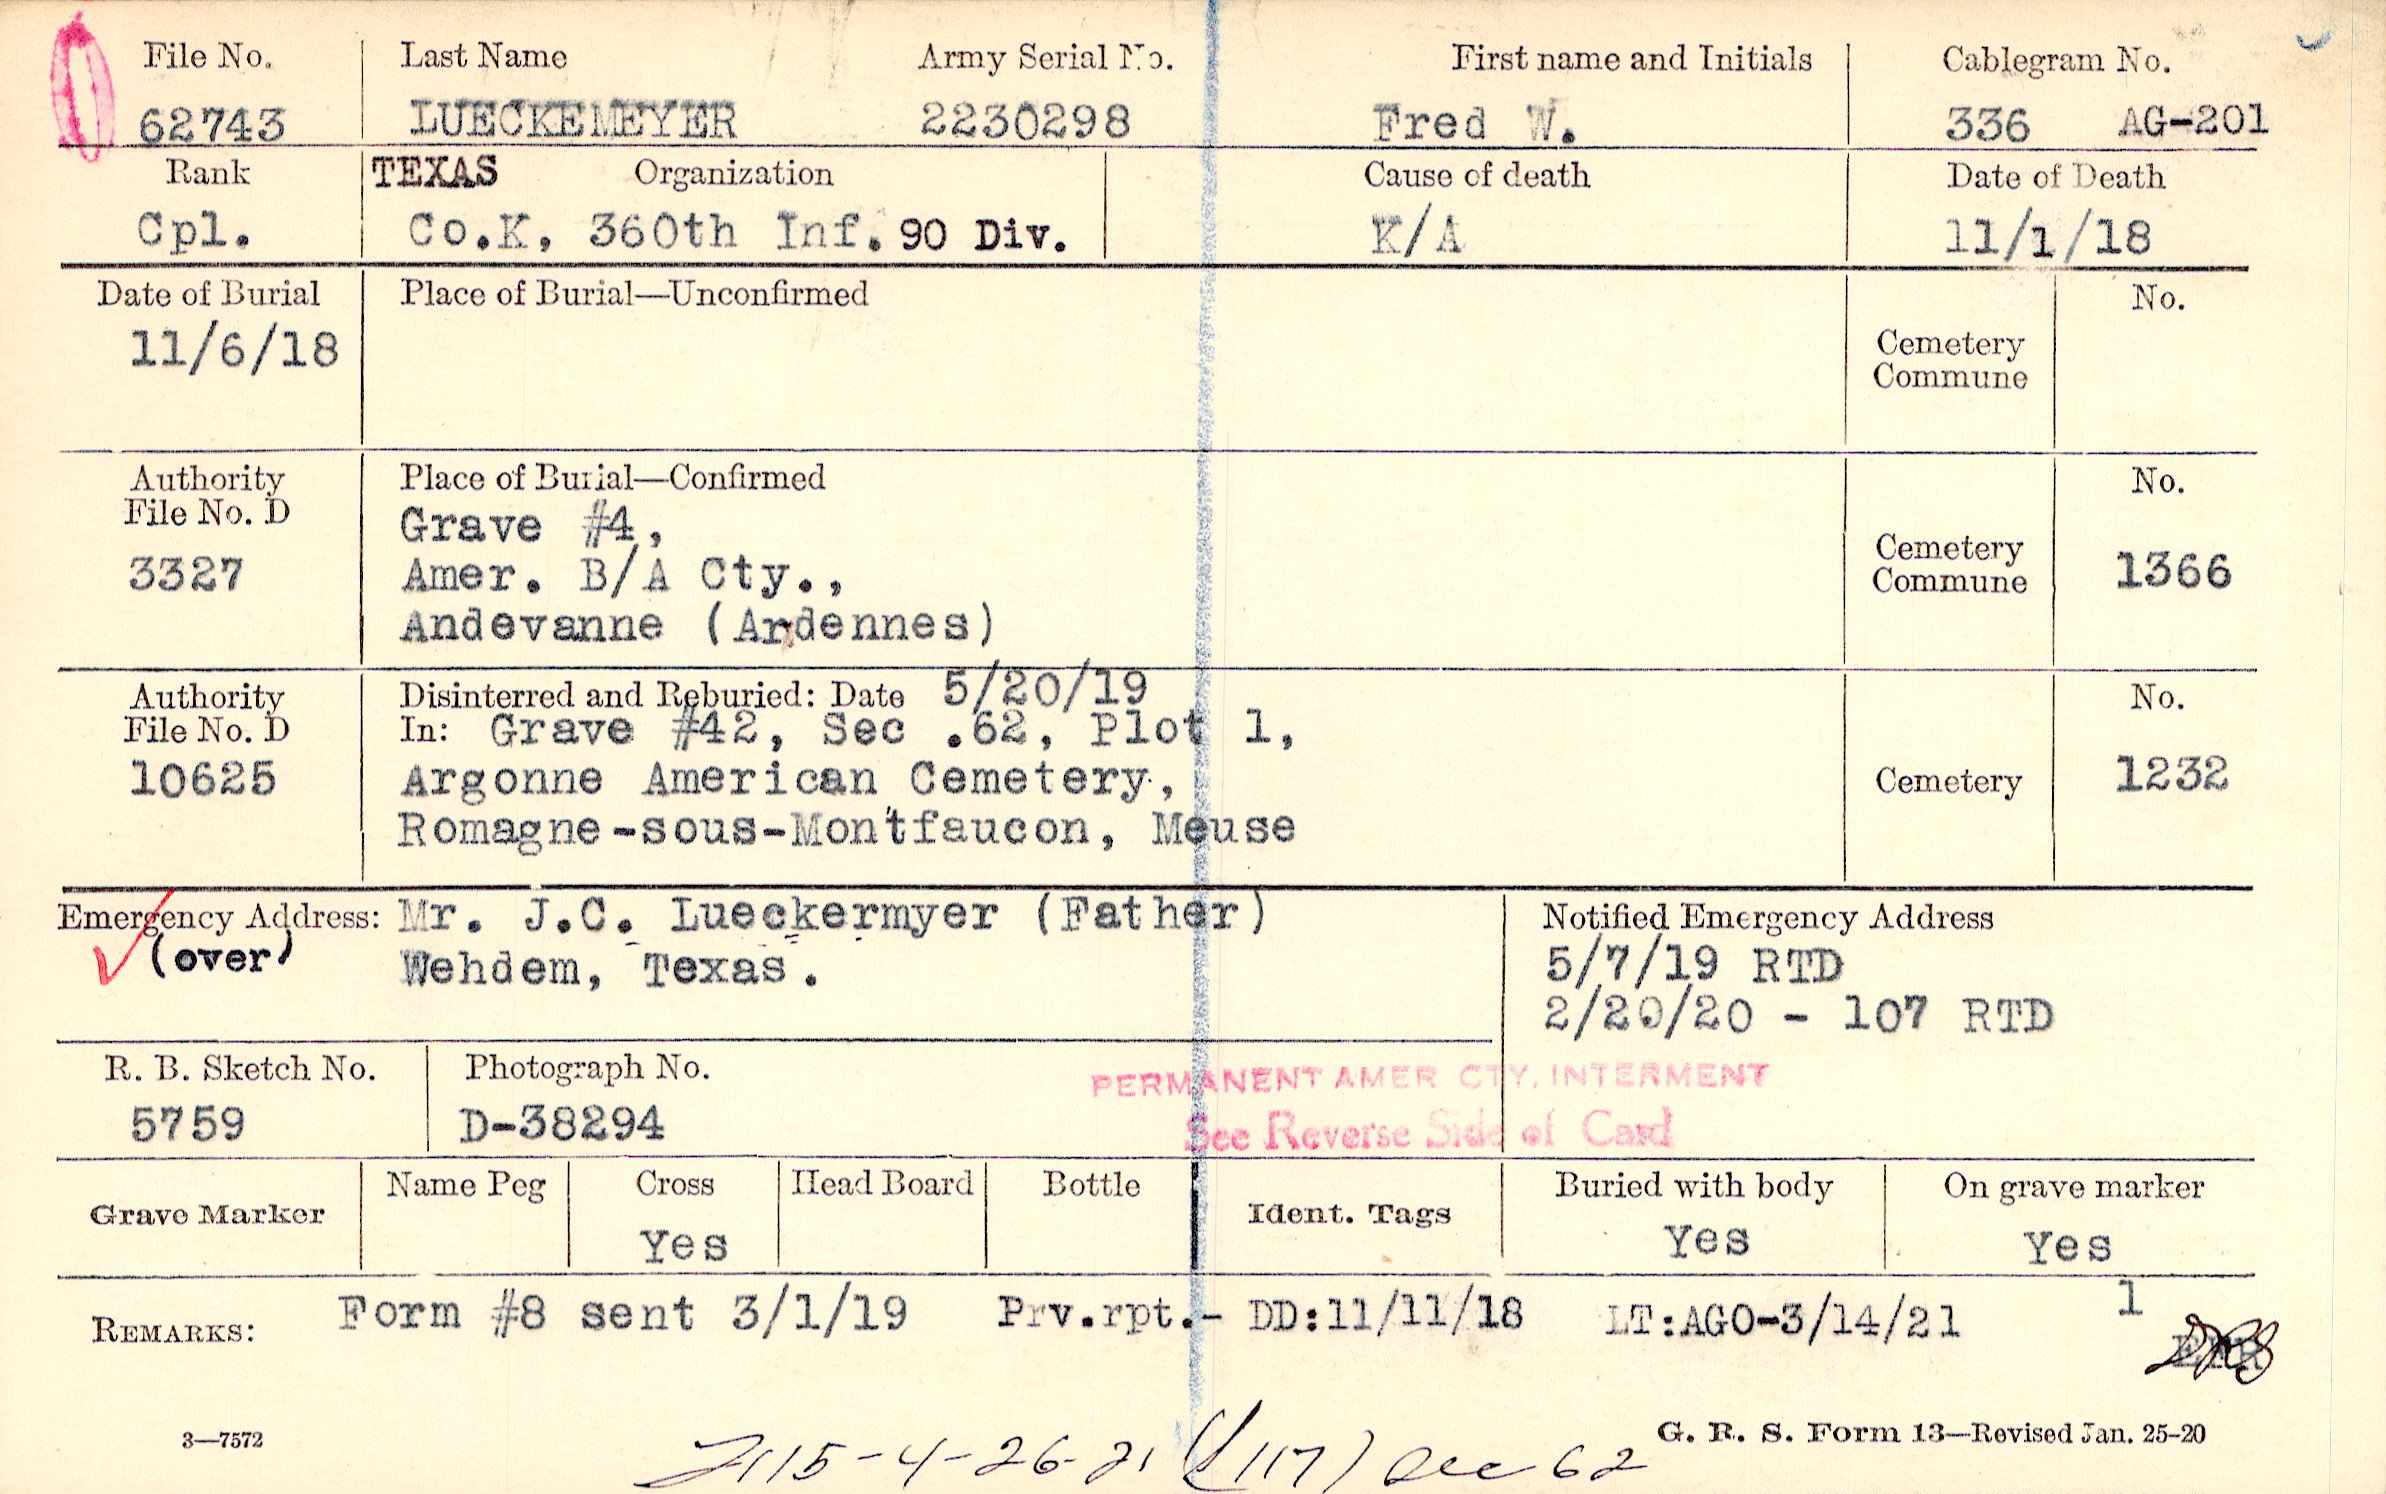 File No. Last Name Army Serial No. First name and Initials Cablegram No.
62743 LUECKEMEYER 2230298 Fred W. 336 AG-201
Rank TEXAS Organization Cause of death Date of Death
Cpl. Co.K, 360th Inf. 90 Div. K/A 11/1/18
Date of Burial Place of Burial—Unconfirmed No.
11/6/18
Cemetery
Commune
Authority Place of Burial—Confirmed No.
File No. D
Grave #4,
3327 Amer. B/A Cty., Cemetery 1366
Commune
Andevanne (Ardennes)
Authority Disinterred and Reburied: Date 5/20/19 No.
File No. D In: Grave #42, Sec .62, Plot 1,
10625 Argonne American Cemetery, Cemetery 1232
Romagne-sous-Montfaucon, Meuse
Emergency Address: Mr. J.C. Lueckermyer (Father) Notified Emergency Address
(over) Wehdem, Texas. 5/7/19 RTD
2/20/20 - 107 RTD
R. B. Sketch No. Photograph No. PERMANENT AMER CTY. INTERMENT
5759 D-38294 See Reverse Side of Card
Grave Marker Name Peg Cross Head Board Bottle Ident. Tags Buried with body On grave marker
Yes Yes Yes
REMARKS: Form #8 sent 3/1/19 Prv.rpt.- DD:11/11/18 LT:AGO-3/14/21 1
3—7572 G. R. S. Form 13—Revised Jan. 25-20
115-4-26-21 (1117) Dec 62